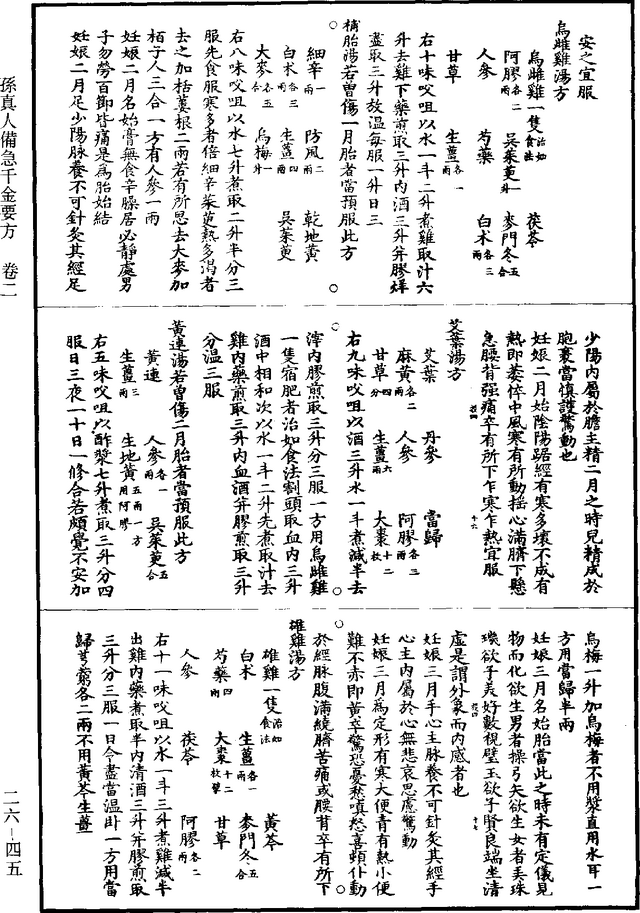 孫真人備急千金要方　卷二
二六－四五
安之宜服
烏雌雞湯方
烏雌雞一隻治如食法　茯苓
阿膠各二兩　吳茱萸一升　麥門冬五合
人參　芍藥　白朮各三兩
甘草　生薑各一兩
右十味㕮咀以水一斗二升煮雞取汁六
升去雞下藥煎取三升內酒三升并膠烊
盡取三升放溫每服一升日三
補胎湯若曾傷一月胎者當預服此方
細辛一兩　防風二兩　乾地黃
白朮各三兩　生薑四兩　吳茱萸
大麥各五合　烏梅一升
右八味㕮咀以水七升煮取二升半分三
服先食服寒多者倍細辛茱萸熱多渴者
去之加栝蔞根二兩若有所思去大麥加
栢子人三合一方有人參一兩
妊娠二月名始膏無食辛臊居必靜處男
子勿勞百節皆痛是為胎始結
妊娠二月足少陽脉養不可針灸其經足
少陽內屬於膽主精二月之時兒精成於
胞裏當慎護驚動也
妊娠二月始陰陽踞經有寒多壞不成有
熱即萎悴中風寒有所動搖心滿臍下懸
急腰背強痛卒有所下乍寒乍熱宜服
艾葉湯方
艾葉　丹參　當歸
麻黃各二兩　人參　阿膠各三兩
甘草四分　生薑六兩　大棗十二枚
右九味㕮咀以酒三升水一斗煮減半去
滓內膠煎取三升分三服一方用烏雌雞
一隻宿肥者治如食法割頭取血內三升
酒中相和次以水一斗二升先煮取汁去
雞內藥煎取三升內血酒并膠煎取三升
分溫三服
黃連湯若曾傷二月胎者當預服此方
黃連　人參各一兩　吳茱萸五合
生薑三兩　生地黃五兩一方用阿膠
右五味㕮咀以酢漿七升煮取三升分四
服日三夜一十日一修合若頗覺不安加
烏梅一升加烏梅者不用漿直用水耳一
方用當歸半兩
妊娠三月名始胎當此之時未有定儀見
物而化欲生男者操弓矢欲生女者弄珠
璣欲子美好數視璧玉欲子賢良端坐清
虛是謂外象而內感者也
妊娠三月手心主脉養不可針灸其經手
心主內屬於心無悲哀思慮驚動
妊娠三月為定形有寒大便青有熱小便
難不赤即黃卒驚恐憂愁嗔怒喜頓仆動
於經脉腹滿繞臍苦痛或腰背卒有所下
雄雞湯方
雄雞一隻治如食法　黃芩
白朮　生薑各一兩　麥門冬五合
芍藥四兩　大棗十二枚擘　甘草
人參　茯苓　阿膠各二兩
右十一味㕮咀以水一斗三升煮雞減半
出雞內藥煮取半內清酒三升并膠煎取
三升分三服一日令盡當溫臥一方用當
歸芎藭各二兩不用黃芩生薑